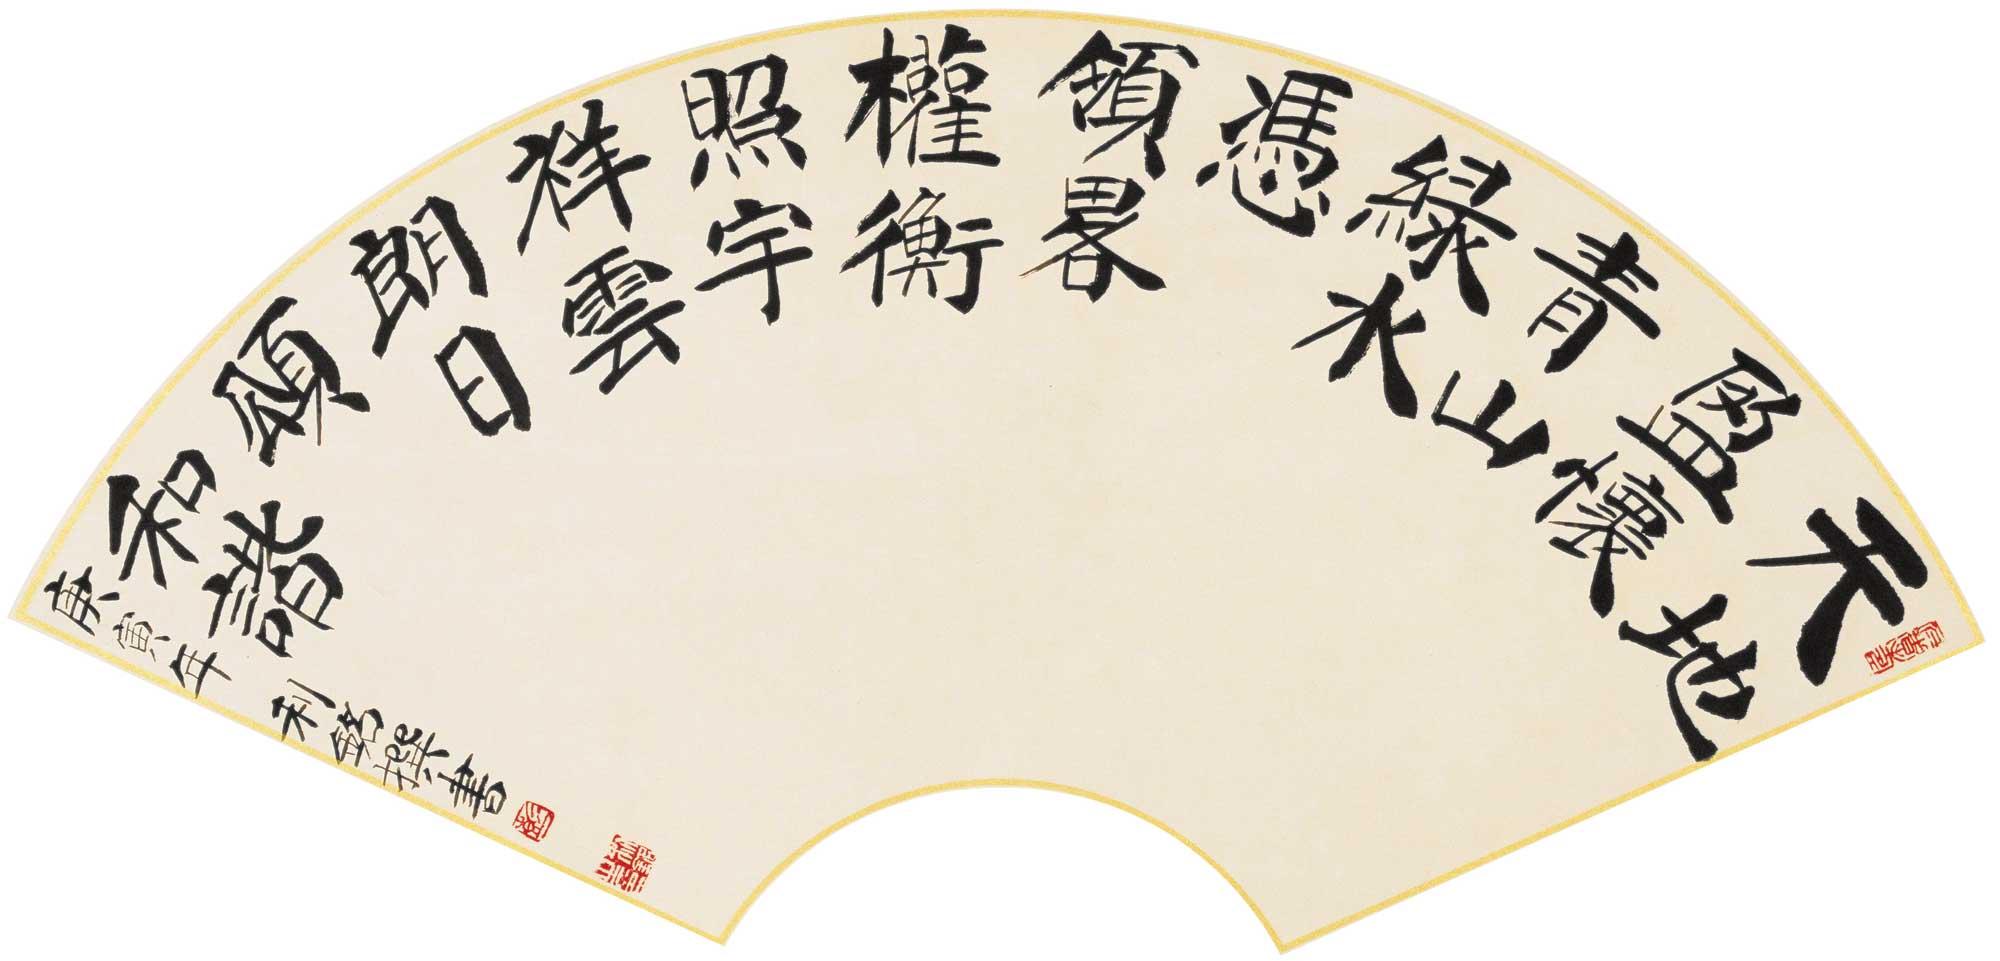 天地
盈懷
青山
緑水
憑
領畧
權衡
照宇
祥雲
朗日
頌
和諧
庚寅年 利銘撰書